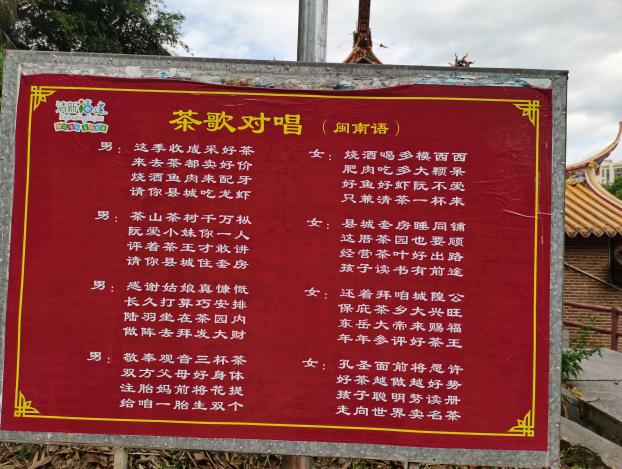 清新福建
茶歌对唱（闽南语）
男：这季收成采好茶
来去茶都卖好价
烧酒鱼肉来配牙
请你县城吃龙虾
女：烧酒喝多模西西
肥肉吃多大颗呆
好鱼好虾阮不爱
只兼清茶一杯来
男：茶山茶树千万枞
阮爱小妹你一人
评着茶王才敢讲
请你县城住套房
女：县城套房睡同铺
这厝茶园也要顾
经营茶叶好出路
孩子读书有前途
男：感谢姑娘真慷慨
长久打算巧安排
陆羽坐在茶园内
做阵去拜发大财
女：还着拜咱城隍公
保庇茶乡大兴旺
东岳大帝来赐福
年年参评好茶王
男：敬奉观音三杯茶
双方父母好身体
注胎妈前将花提
给咱一胎生双个
女：孔圣面前将愿许
好茶越做越好势
孩子聪明势读册
走向世界卖名茶